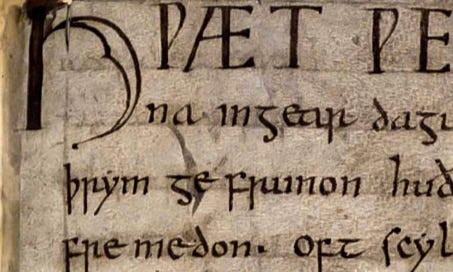 HǷÆT ǷE
na ingear dagu
þrym ge frunon huð
fre medon. oft scyl